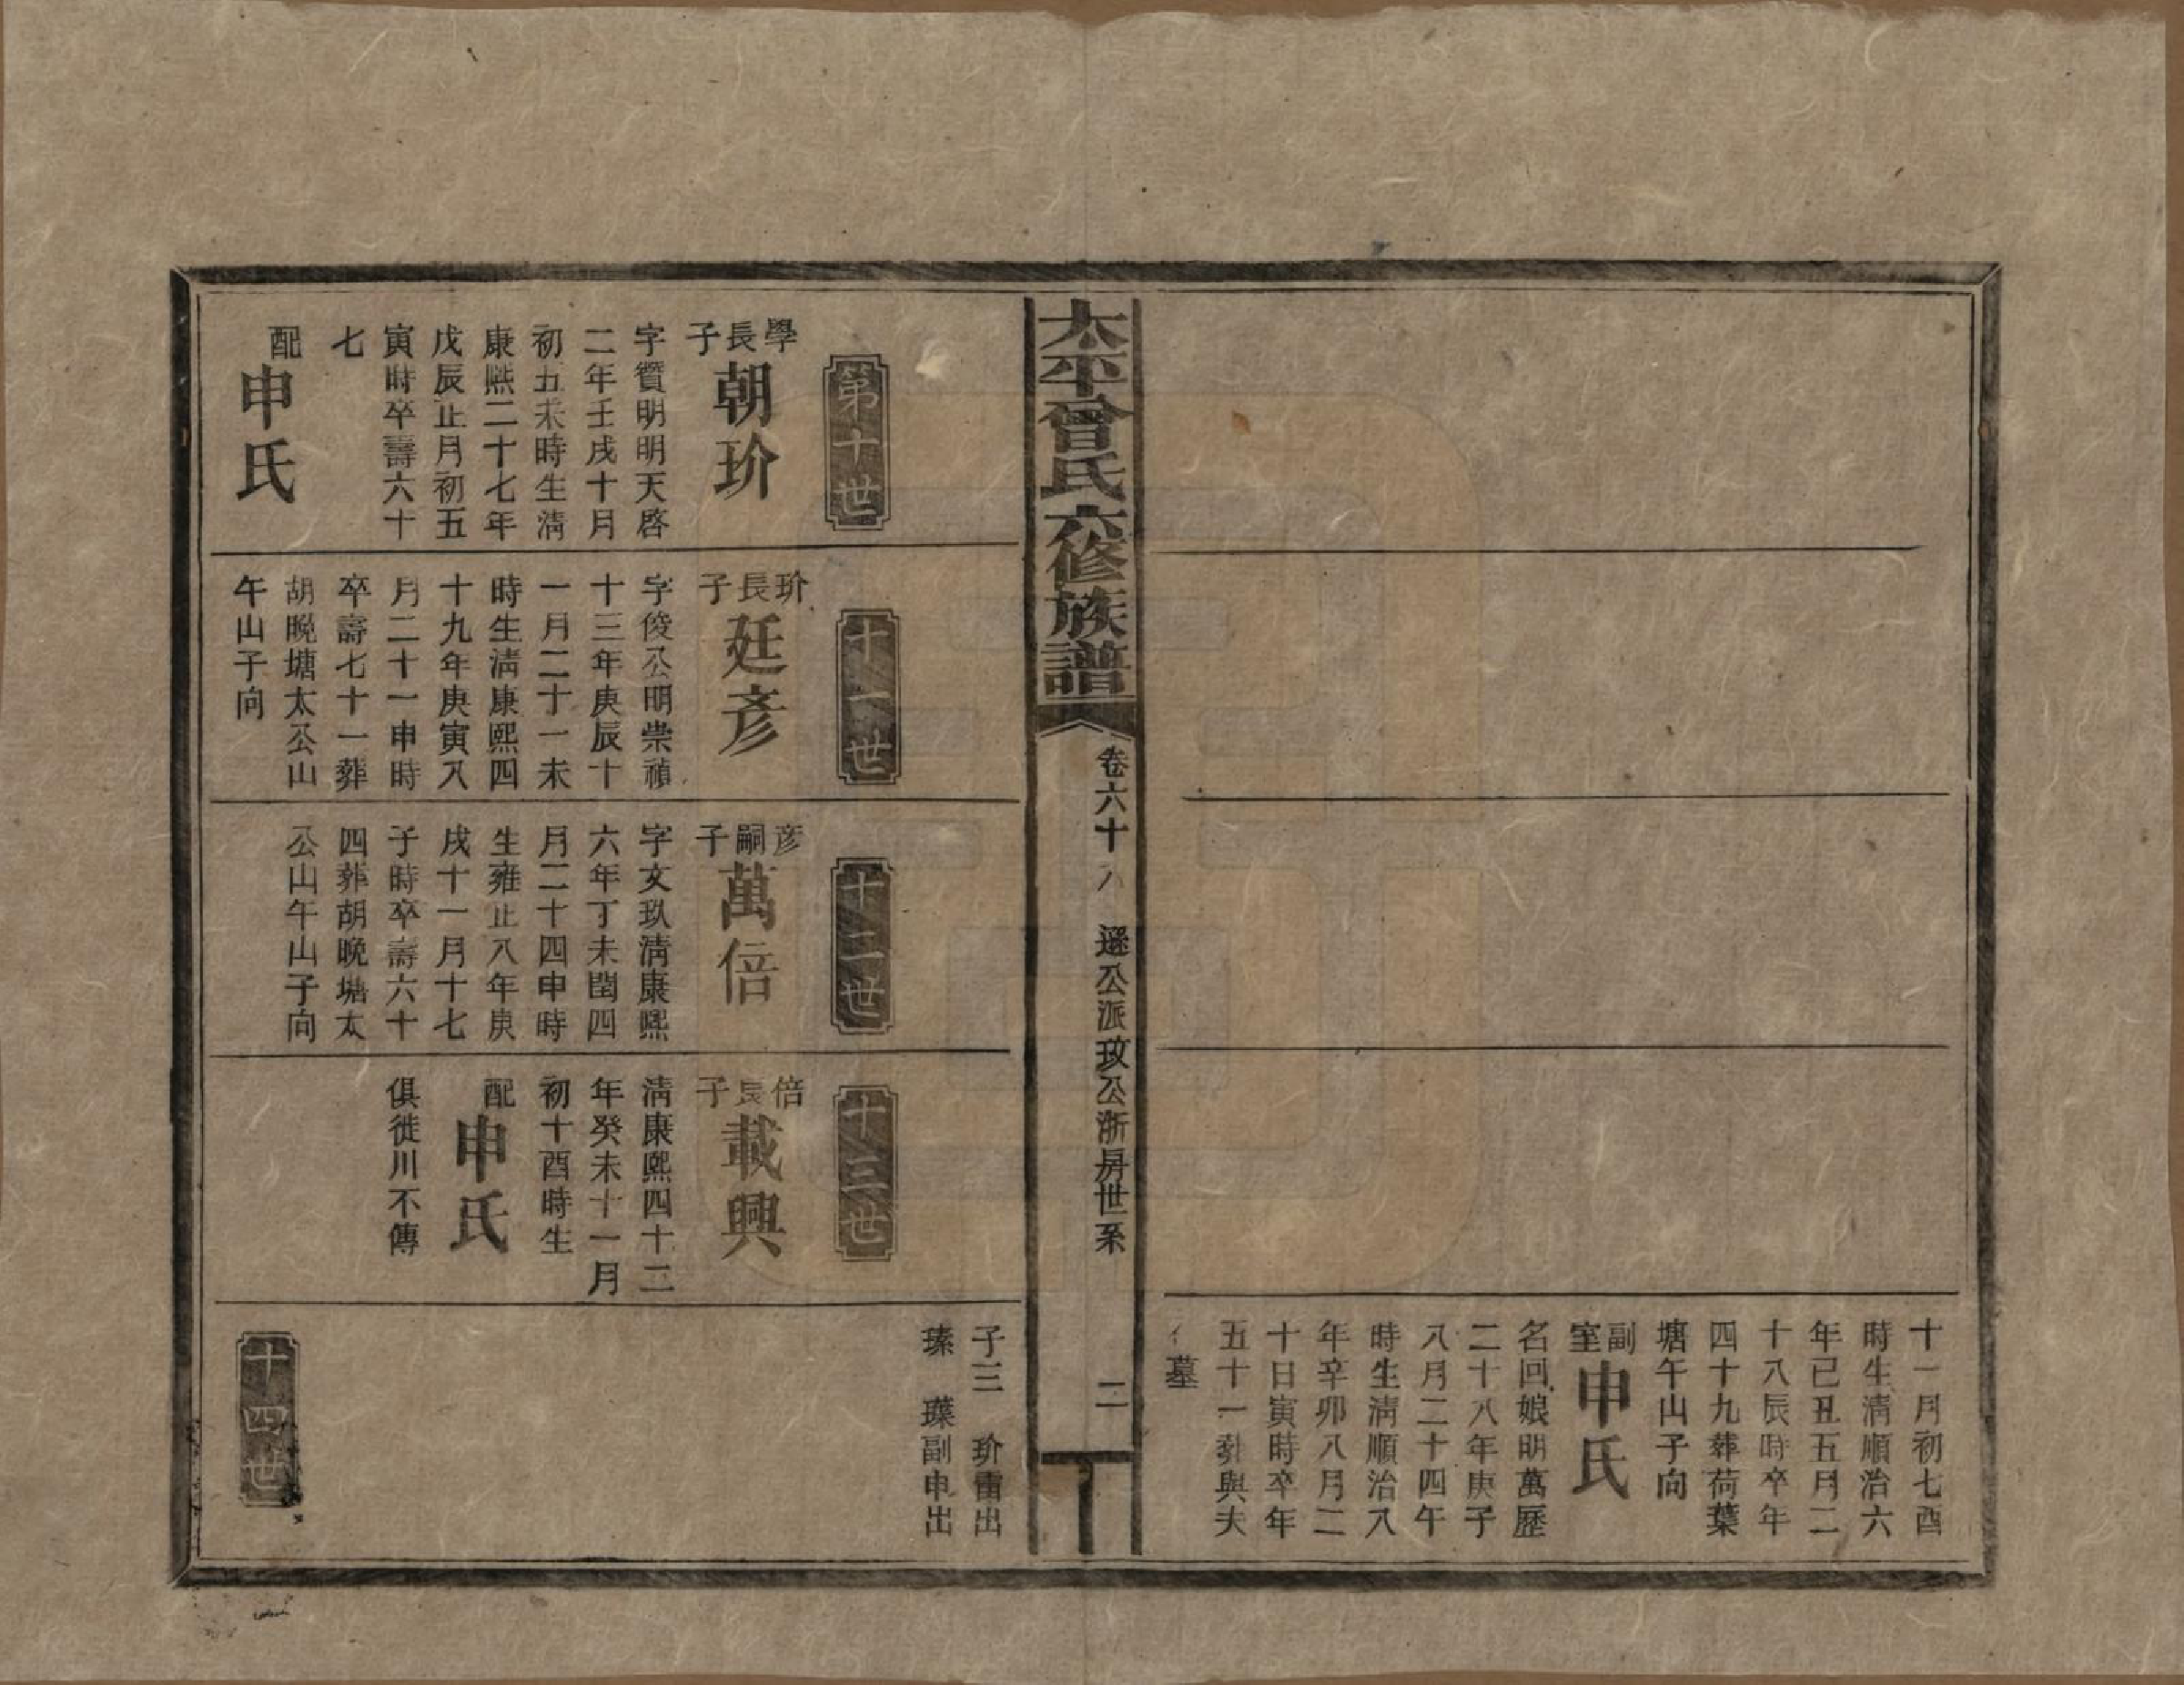 十一月初七酉
時生清順治六
年己丑五月二
十八辰時卒年
四十九葬荷葉
塘午山子向
副室申氏
名回娘明萬歷
二十八年庚子
八月二十四午
時生清順治八
年辛卯八月二
十日寅時卒年
五十一葬與夫
墓
太平曾氏六修族譜
卷六十八 遜公派玫公浙房世系
二
子三 玠雷出
瑧 璞副申出
第十世
學長子朝玠
字贊明明天啓
二年壬戌十月
初五未時生清
康熙二十七年
戊辰正月初五
寅時卒壽六十
七
配申氏
十一世
玠長子廷彥
字俊公明崇禎
十三年庚辰十
一月二十一未
時生清康熙四
十九年庚寅八
月二十一申時
卒壽七十一葬
胡晚塘太公山
午山子向
十二世
彥嗣子萬倍
字文玖清康熙
六年丁未閏四
月二十四申時
生雍正八年庚
戌十一月十七
子時卒壽六十
四葬胡晚塘太
公山午山子向
十三世
倍長子載興
清康熙四十二
年癸未十一月
初十酉時生
配申氏
俱徙川不傳
十四世